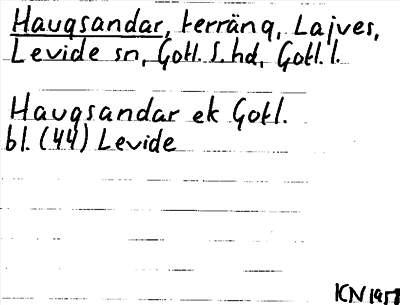 Haugsandar, terräng, Lajves,
Levide sn, Gotl. S. hd, Gotl. l.
Haugsandar ek Gotl.
bl. (44) Levide